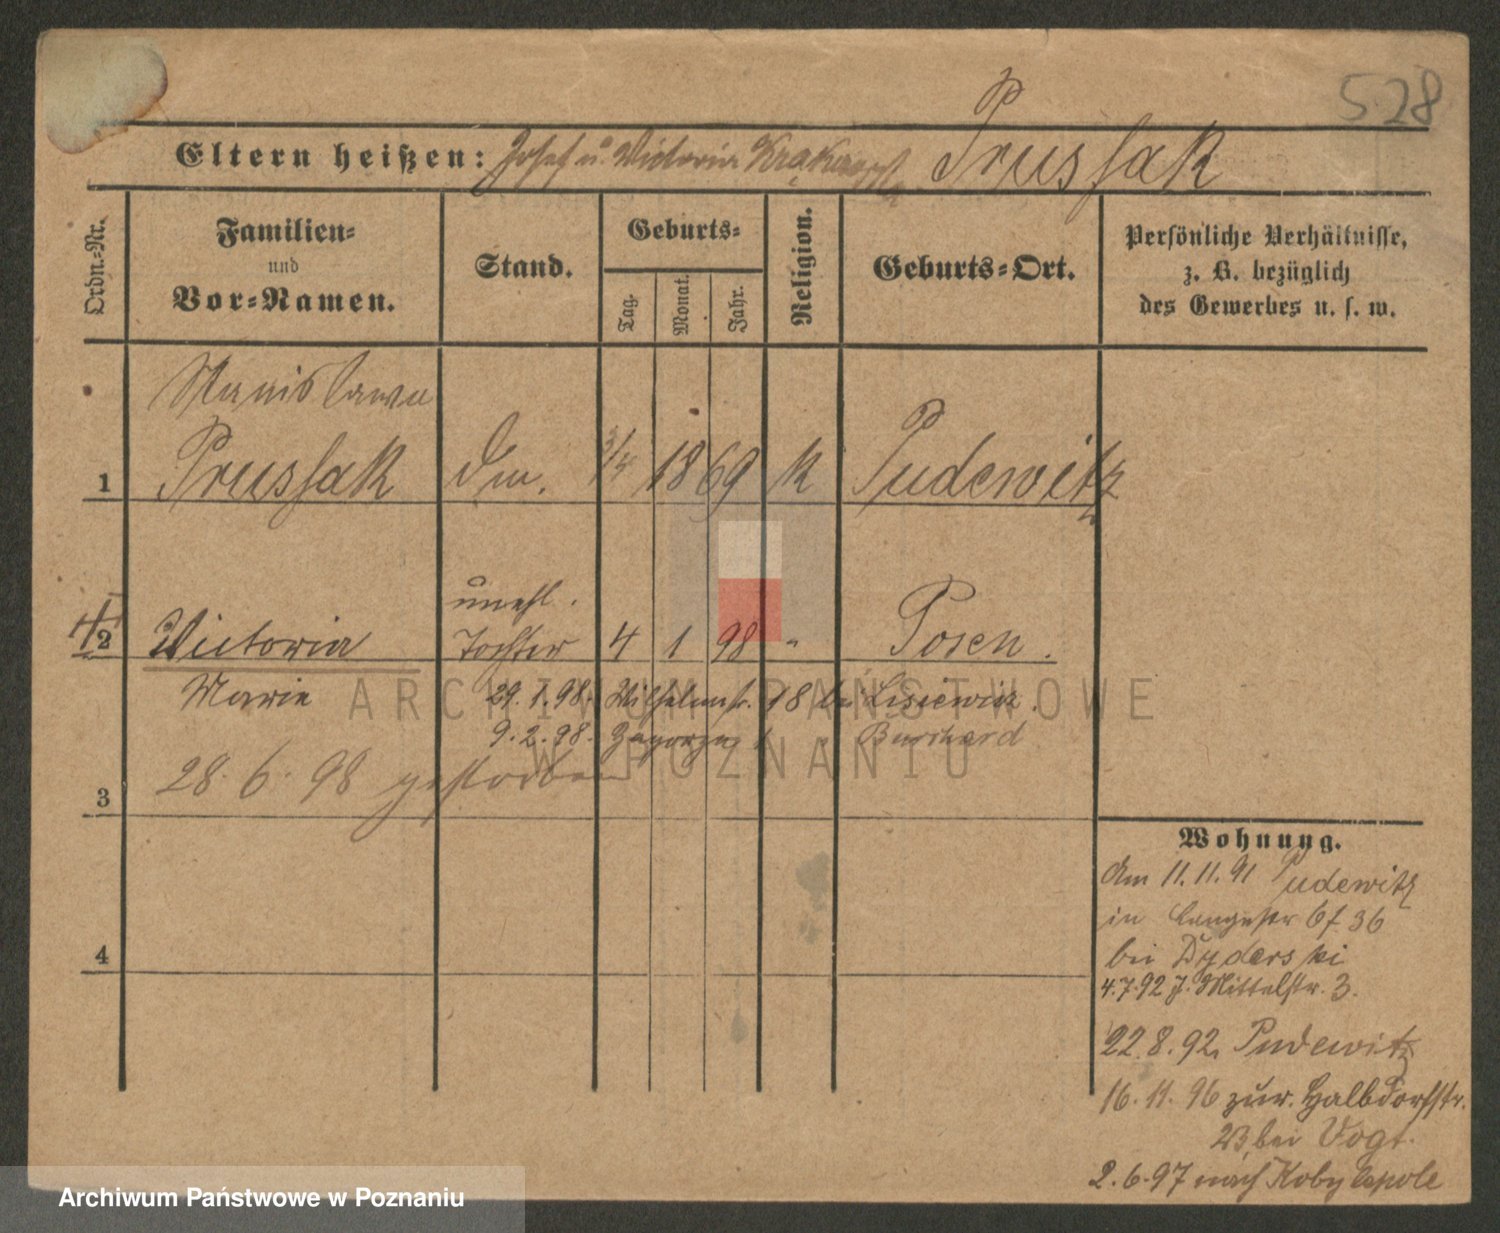 P
528
Eltern heißen: Josef u. Victoria Prussak
Ordn.-Nr.
Familien-
und
Vor-Namen.
Stand.
Geburts-
Tag.
Monat.
Jahr.
Religion.
Geburts-Ort.
Persönliche Verhältnisse,
z. B. bezüglich
des Gewerbes u. s. w.
Stanislawa
1 Prussak 3/4 1869 k Pudewitz
unehl.
2 Victoria Tochter 4 1 98 " Posen.
Marie 29.1.98. Wilhelmstr. 18 bei Lisiewicz.
9.2.98. Burchard
28.6.98 gestorben
3
4
Wohnung.
Am 11.11.91 Pudewitz
in Langestr 6 f 36
bei Dyderski
4.7.92 J. Mittelstr. 3.
22.8.92 Pudewitz
16.11.96 zur. Halbdorfstr.
23 bei Vogt.
2.6.97 nach Kobylepole
ARCHIWUM PAŃSTWOWE
W POZNANIU
Archiwum Państwowe w Poznaniu